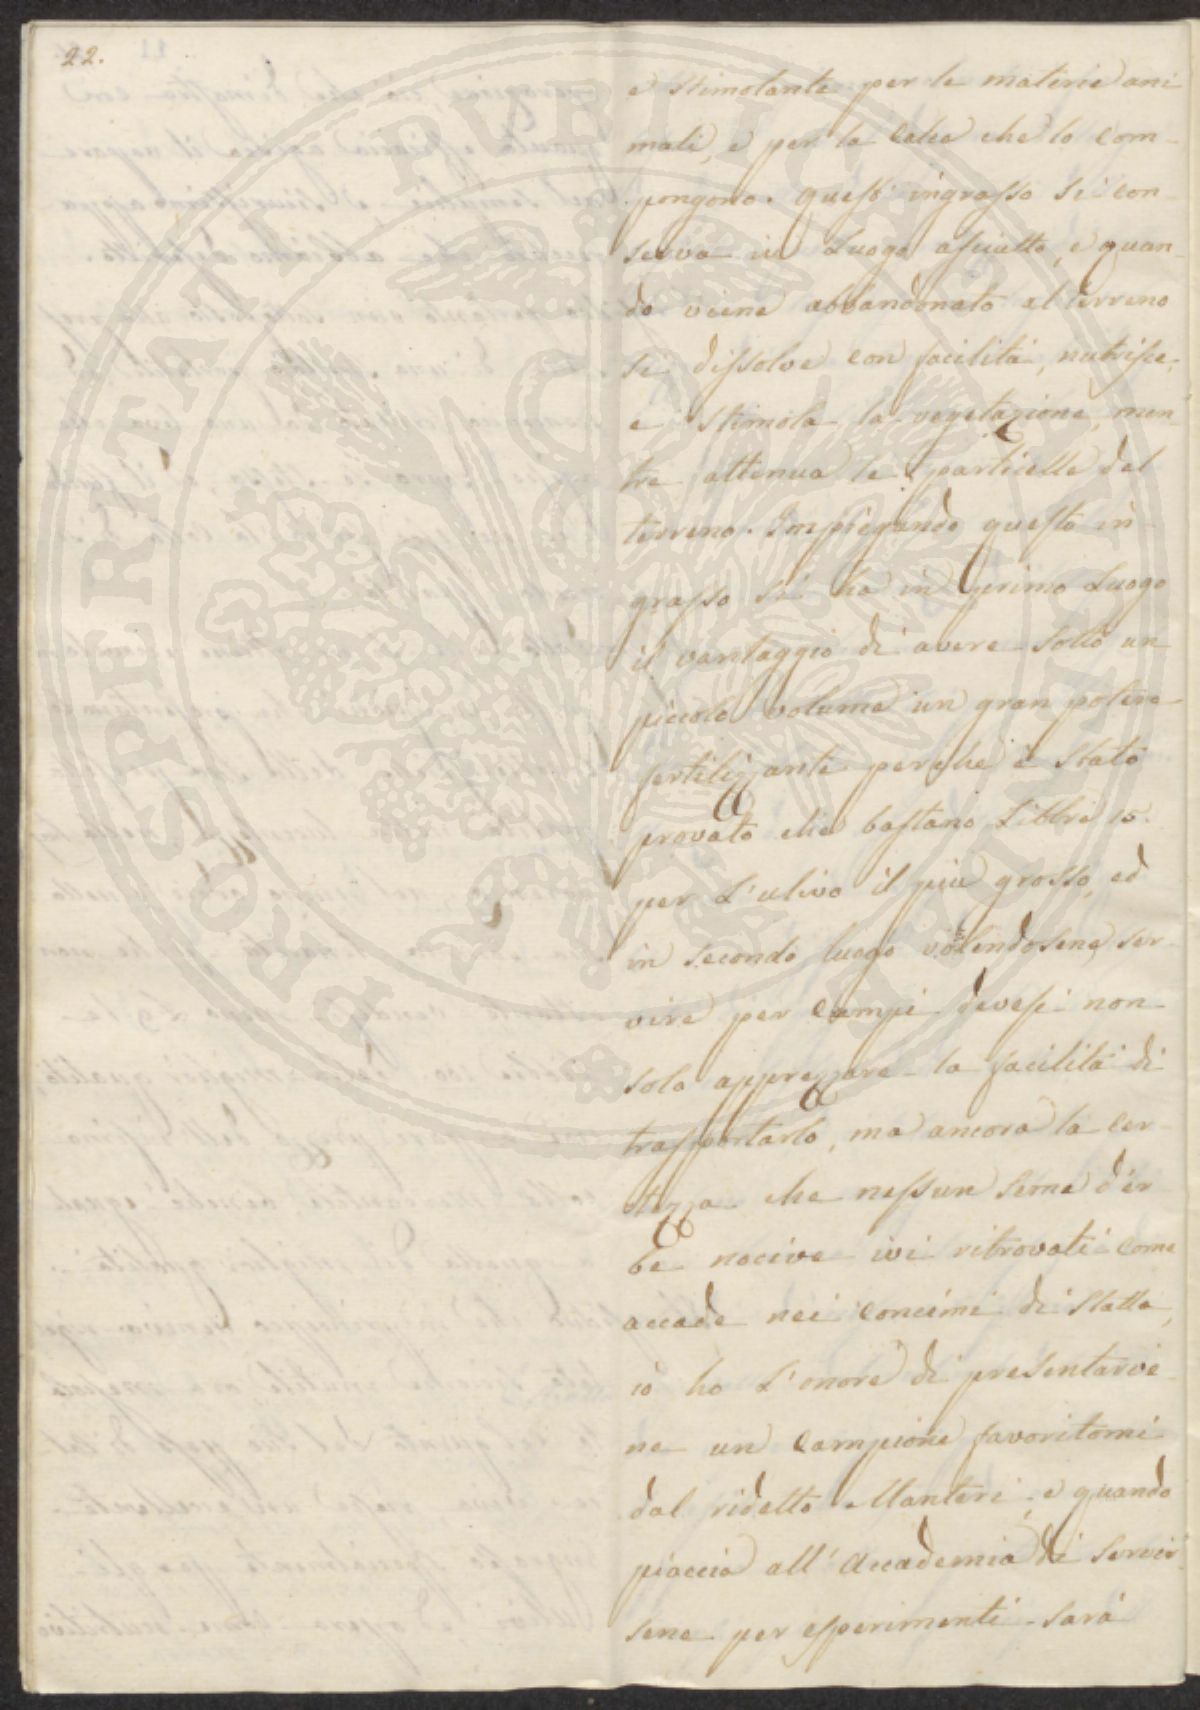 22.
e stimolante per le materie ani
mali, e per la calce che lo com-
pongono. questo ingrasso si con-
serva in Luogo asciutto, e quan-
do viene abbandonato al terreno
si dissolve con facilità, nutrisce,
e stimola la vegetazione, men
tre attenua le particelle del
terreno. Impiegando questo in-
grasso si ha in primo Luogo
il vantaggio di avere sotto un
piccolo volume un gran potere
fertilizzante perchè è stato
provato che bastano Libbre 15.
per L'ulivo il più grosso, ed
in secondo luogo volendosene ser-
vire per campi devesi non
solo apprezzare la facilità di
trasportarlo, ma ancora la cer-
tezza che nessun seme d'er
be nocive ivi ritrovasi come
accade nei concimi di stalla,
io ho L'onore di presentarvi
ne un campione favoritomi
dal ridetto Manteri, e quando
piaccia all'Accademia di servir
sene per esperimenti sarà
PROSPERITATI PUBLICAE AUGENDAE